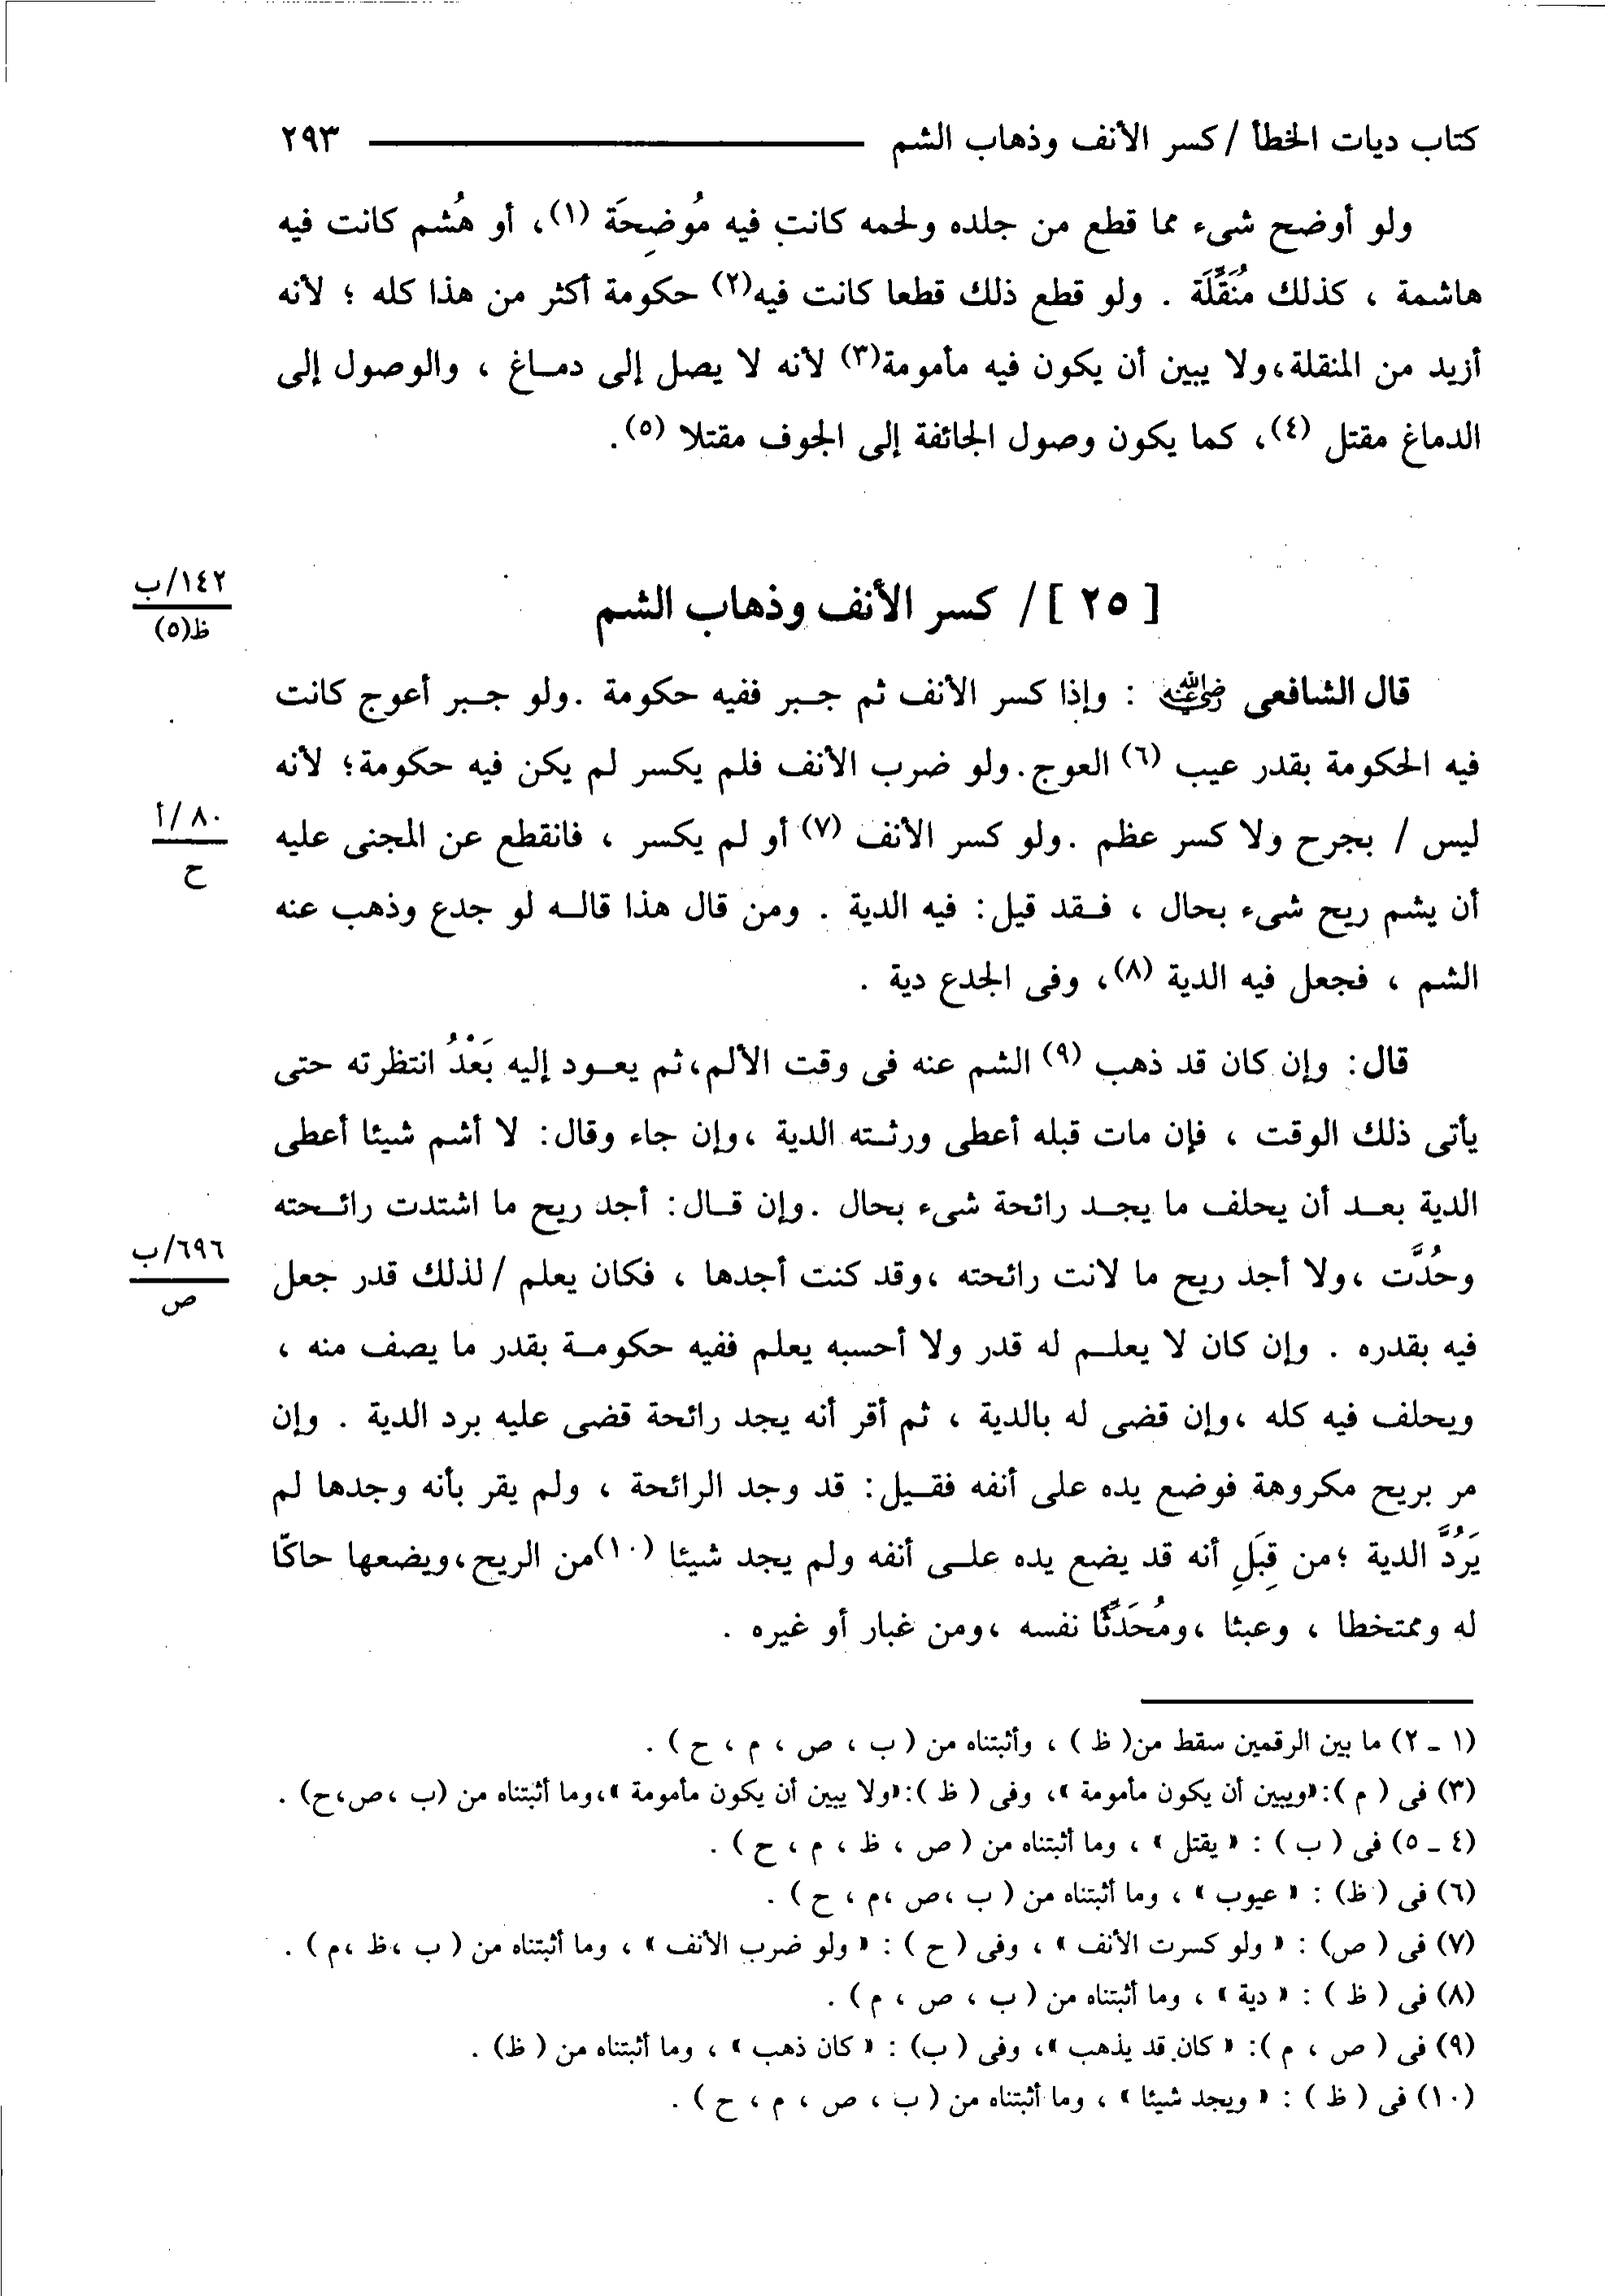 كتاب ديات الخطأ / كسر الأنف وذهاب الشم ٢٩٣
ولو أوضح شىء مما قطع من جلده ولحمه كانت فيه مُوضِحَة (١)، أو هُشم كانت فيه
هاشمة ، كذلك مُنَقِّلَة . ولو قطع ذلك قطعا كانت فيه(٢) حكومة أكثر من هذا كله ؛ لأنه
أزيد من المنقلة،ولا يبين أن يكون فيه مأمومة(٣) لأنه لا يصل إلى دمـاغ ، والوصول إلى
الدماغ مقتل (٤)، كما يكون وصول الجائفة إلى الجوف مقتلا (٥).
١٤٢/ب
ظ(٥)
[ ٢٥ ]/ كسر الأنف وذهاب الشم
قال الشافعى رضي الله عنه : وإذا كسر الأنف ثم جـبر ففيه حكومة .ولو جـبر أعوج كانت
فيه الحكومة بقدر عيب (٦) العوج.ولو ضرب الأنف فلم يكسر لم يكن فيه حكومة؛ لأنه
٨٠/أ
ح
ليس / بجرح ولا كسر عظم .ولو كسر الأنف (٧) أو لم يكسر ، فانقطع عن المجنى عليه
أن يشم ريح شىء بحال ، فـقد قيل: فيه الدية . ومن قال هذا قالـه لو جدع وذهب عنه
الشم ، فجعل فيه الدية (٨)، وفى الجدع دية .
قال: وإن كان قد ذهب (٩) الشم عنه فى وقت الألم،ثم يعـود إليه بَعْدُ انتظرته حتى
يأتى ذلك الوقت ، فإن مات قبله أعطى ورثـته الدية ،وإن جاء وقال: لا أشم شيئا أعطى
الدية بعـد أن يحلف ما يجـد رائحة شىء بحال .وإن قـال: أجد ريح ما اشتدت رائـحته
٦٩٦/ب
ص
وحُدَّت ،ولا أجد ريح ما لانت رائحته ،وقد كنت أجدها ، فكان يعلم /لذلك قدر جعل
فيه بقدره . وإن كان لا يعلـم له قدر ولا أحسبه يعلم ففيه حكومـة بقدر ما يصف منه ،
ويحلف فيه كله ،وإن قضى له بالدية ، ثم أقر أنه يجد رائحة قضى عليه برد الدية . وإن
مر بريح مكروهة فوضع يده على أنفه فقـيل: قد وجد الرائحة ، ولم يقر بأنه وجدها لم
يَرُدَّ الدية ؛من قِبَلِ أنه قد يضع يده علـى أنفه ولم يجد شيئا (١٠)من الريح،ويضعها حاكّا
له وممتخطا ، وعبثا ،ومُحَدِّثًا نفسه ،ومن غبار أو غيره .
(١ ـ ٢) ما بين الرقمين سقط من( ظ ) ، وأثبتناه من ( ب ، ص ، م ، ح ) .
(٣) فى ( م ):«ويبين أن يكون مأمومة »، وفى ( ظ ):«ولا يبين أن يكون مأمومة »،وما أثبتناه من (ب ،ص،ح) .
(٤ ـ ٥) فى ( ب ) : « يقتل » ، وما أثبتناه من ( ص ، ظ ، م ، ح ) .
(٦) فى ( ظ) : « عيوب » ، وما أثبتناه من ( ب ،ص ،م ، ح ) .
(٧) فى ( ص) : « ولو كسرت الأنف » ، وفى ( ح ) : « ولو ضرب الأنف » ، وما أثبتناه من ( ب ،ظ ،م ) .
(٨) فى ( ظ ) : « دية » ، وما أثبتناه من ( ب ، ص ، م ) .
(٩) فى ( ص ، م ): « كان قد يذهب »، وفى ( ب) : « كان ذهب » ، وما أثبتناه من ( ظ) .
(١٠) فى ( ظ ) : « ويجد شيئا » ، وما أثبتناه من ( ب ، ص ، م ، ح ) .